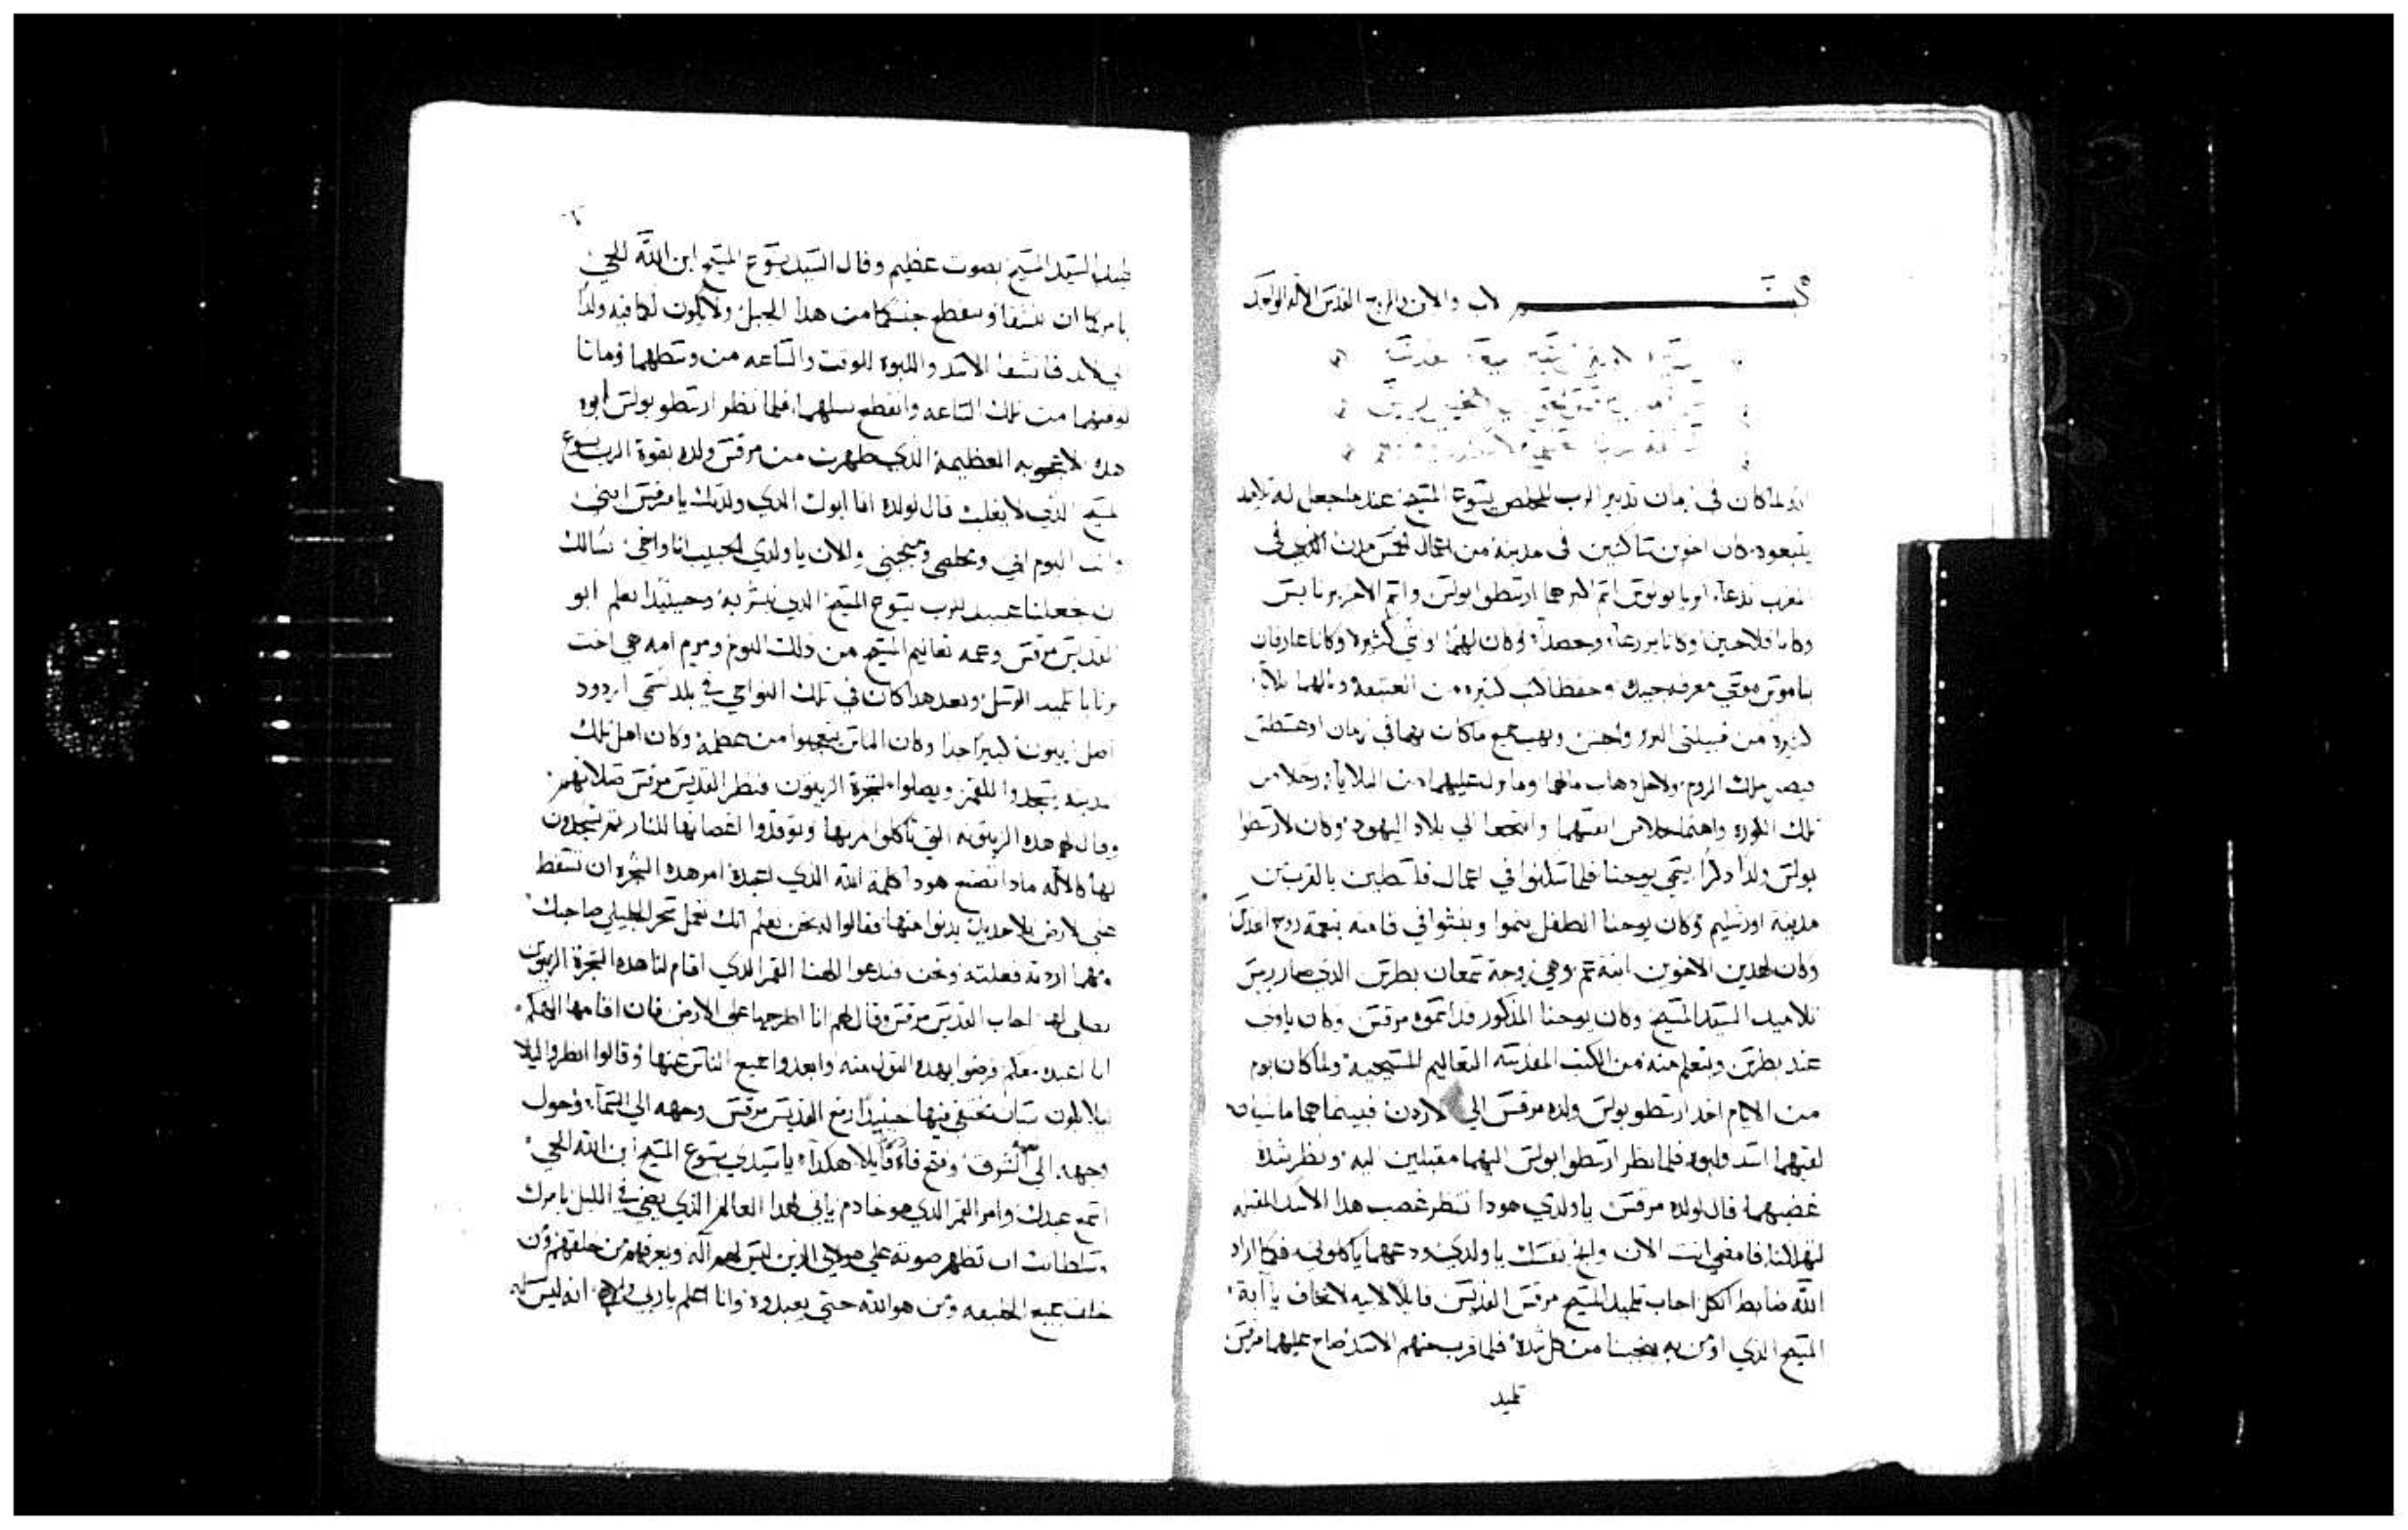 بسم الاب والابن والروح القدس الاله الواحد
انه لما كان في زمان تدبير الرب المخلص يسوع المسيح عندما جعل له تلاميد
يتبعوه كان اخوين ساكنين في مدينة من اعمال الخمس مدن الذي في
المغرب تدعا اسم اكبرهما ارسطوابولس واسم الاخر برنابس
وكانا فلاحين وكانا يزرعا ويحصدا وكان لهما اواني كثيرة وكانا عارفان
بناموس موسى معرفه جيده وحفظا كتب كثيره من العتيقه ونالهما بلايا
كثيرة من قبيلتي البربر والحبش ونهب جميع ما كان لهما في زمان اوغسطس
قيصر ملك الروم ولاجل دهاب مالهما وما نزل عليهما من البلايا رحلا من
تلك الكوره واهتما بخلاص انفسهما وانتجعا الي بلاد اليهود وكان لارسطوا
بولس ولدا دكرا يسمى يوحنا فلما سكنوا في اعمال فلسطين بالقرب من
مدينة اورشليم وكان يوحنا الطفل ينموا وينشوا في قامته بنعمة روح القدس
وكان لهدين الاخوين ابنة عم وهي زوجة سمعان بطرس الذي صار ريس
تلاميد السيد المسيح وكان يوحنا المذكور قد اسموه مرقس وكان ياوي
عند بطرس ويتعلم منه من الكتب المقدسه التعاليم المسيحية ولما كان يوم
من الايام اخد ارسطوبولس ولده مرقس الي الاردن فبينما هما ماشيان
لقيهما اسد ولبوه فلما نظر ارسطوابولس اليهما مقبلين اليه ونظر شدة
غضبهما قال لولده مرقس يا ولدي هودا تنظر غضب هذا الاسد المقبل
ليهلكنا فامضي انت الان وانج بنفسك يا ولدي ودعهما ياكلوني فكما اراد
الله ضابط الكل اجاب تلميد المسيح مرقس القديس قايلا لابيه لا تخاف يا ابة
المسيح الذي اومن به ينجينا من كل شدة فلما قرب منهم الاسد صاح عليهما مرقس
تلميد
تلميد السيد المسيح بصوت عظيم وقال السيد يسوع المسيح ابن الله الحي
يامركما ان تنشقا وينقطع جنسكما من هدا الجبل ولا يكون لكما فيه ولدا
فانشقا الاسد واللبوة للوقت والساعه من وسطهما وماتا
لوقتهما من تلك الساعه وانقطع نسلهما فلما نظر ارسطوبولس ابوه
هده الاعجوبه العظيمة الذي ظهرت من مرقس ولده بقوة الرب يسوع
المسيح الذي لا يغلب قال لولده انا ابوك الذي ولدتك يا مرقس ابني
وانت اليوم ابي ومخلصي ومنجيني والان يا ولدي الحبيب انا واخي نسالك
ان تجعلنا عبيد للرب يسوع المسيح الذي تبشر به وحينيدا تعلم ابو
القديس مرقس وعمه تعاليم المسيح من دلك اليوم ومريم امه هي اخت
برنابا تلميد الرسل وبعد هدا كان في تلك النواحي في بلد تسمى ازدود
اصل زيتون كبيرا جدا وكان الناس يتعجبوا من عظمه وكان اهل تلك
المدينه يسجدوا للقمر ويصلوا لشجرة الزيتون فنظر القديس مرقس صلاتهم
وقال لهم هده الزيتونه التي تاكلوا ثمرتها وتوقدوا اغصانها للنار ثم تسجدون
لها كالاله مادا تصنع هودا كلمة الله الذي اعبده امر هده الشجره ان تسقط
على الارض بلا حديد يدنوا منها فقالوا له نحن نعلم انك تعمل سحر الجليلي صاحبك
ومهما اردته فعلته ونحن فندعوا الهنا القمر الذي اقام لنا هده الشجرة الزيتون
نصلي لها اجاب القديس مرقس وقال لهم انا اطرحها على الارض فان اقامها الهكم
انا اعبده معكم فرضوا بهده القول منه وابعدوا جميع الناس عنها وقالوا انظروا ليلا
ليلا يكون انسان مختفي فيها حينيدا رفع القديس مرقس وجهه الي السماء وحول
وجهه الى الشرق وفتح فاه قايلا هكدا يا سيدي يسوع المسيح ابن الله الحي
اسمع عبدك وامر القمر الذي هو خادم ثاني لهدا العالم الذي يضي في الليل بامرك
وسلطانك ان تظهر صوته على هولاي الذين ليس لهم اله ويعرفهم من خلقهم ومن
خلق جميع الخليقه ومن هو الله حتى يعبدوه وانا اعلم يا ربي والهي انه ليس له